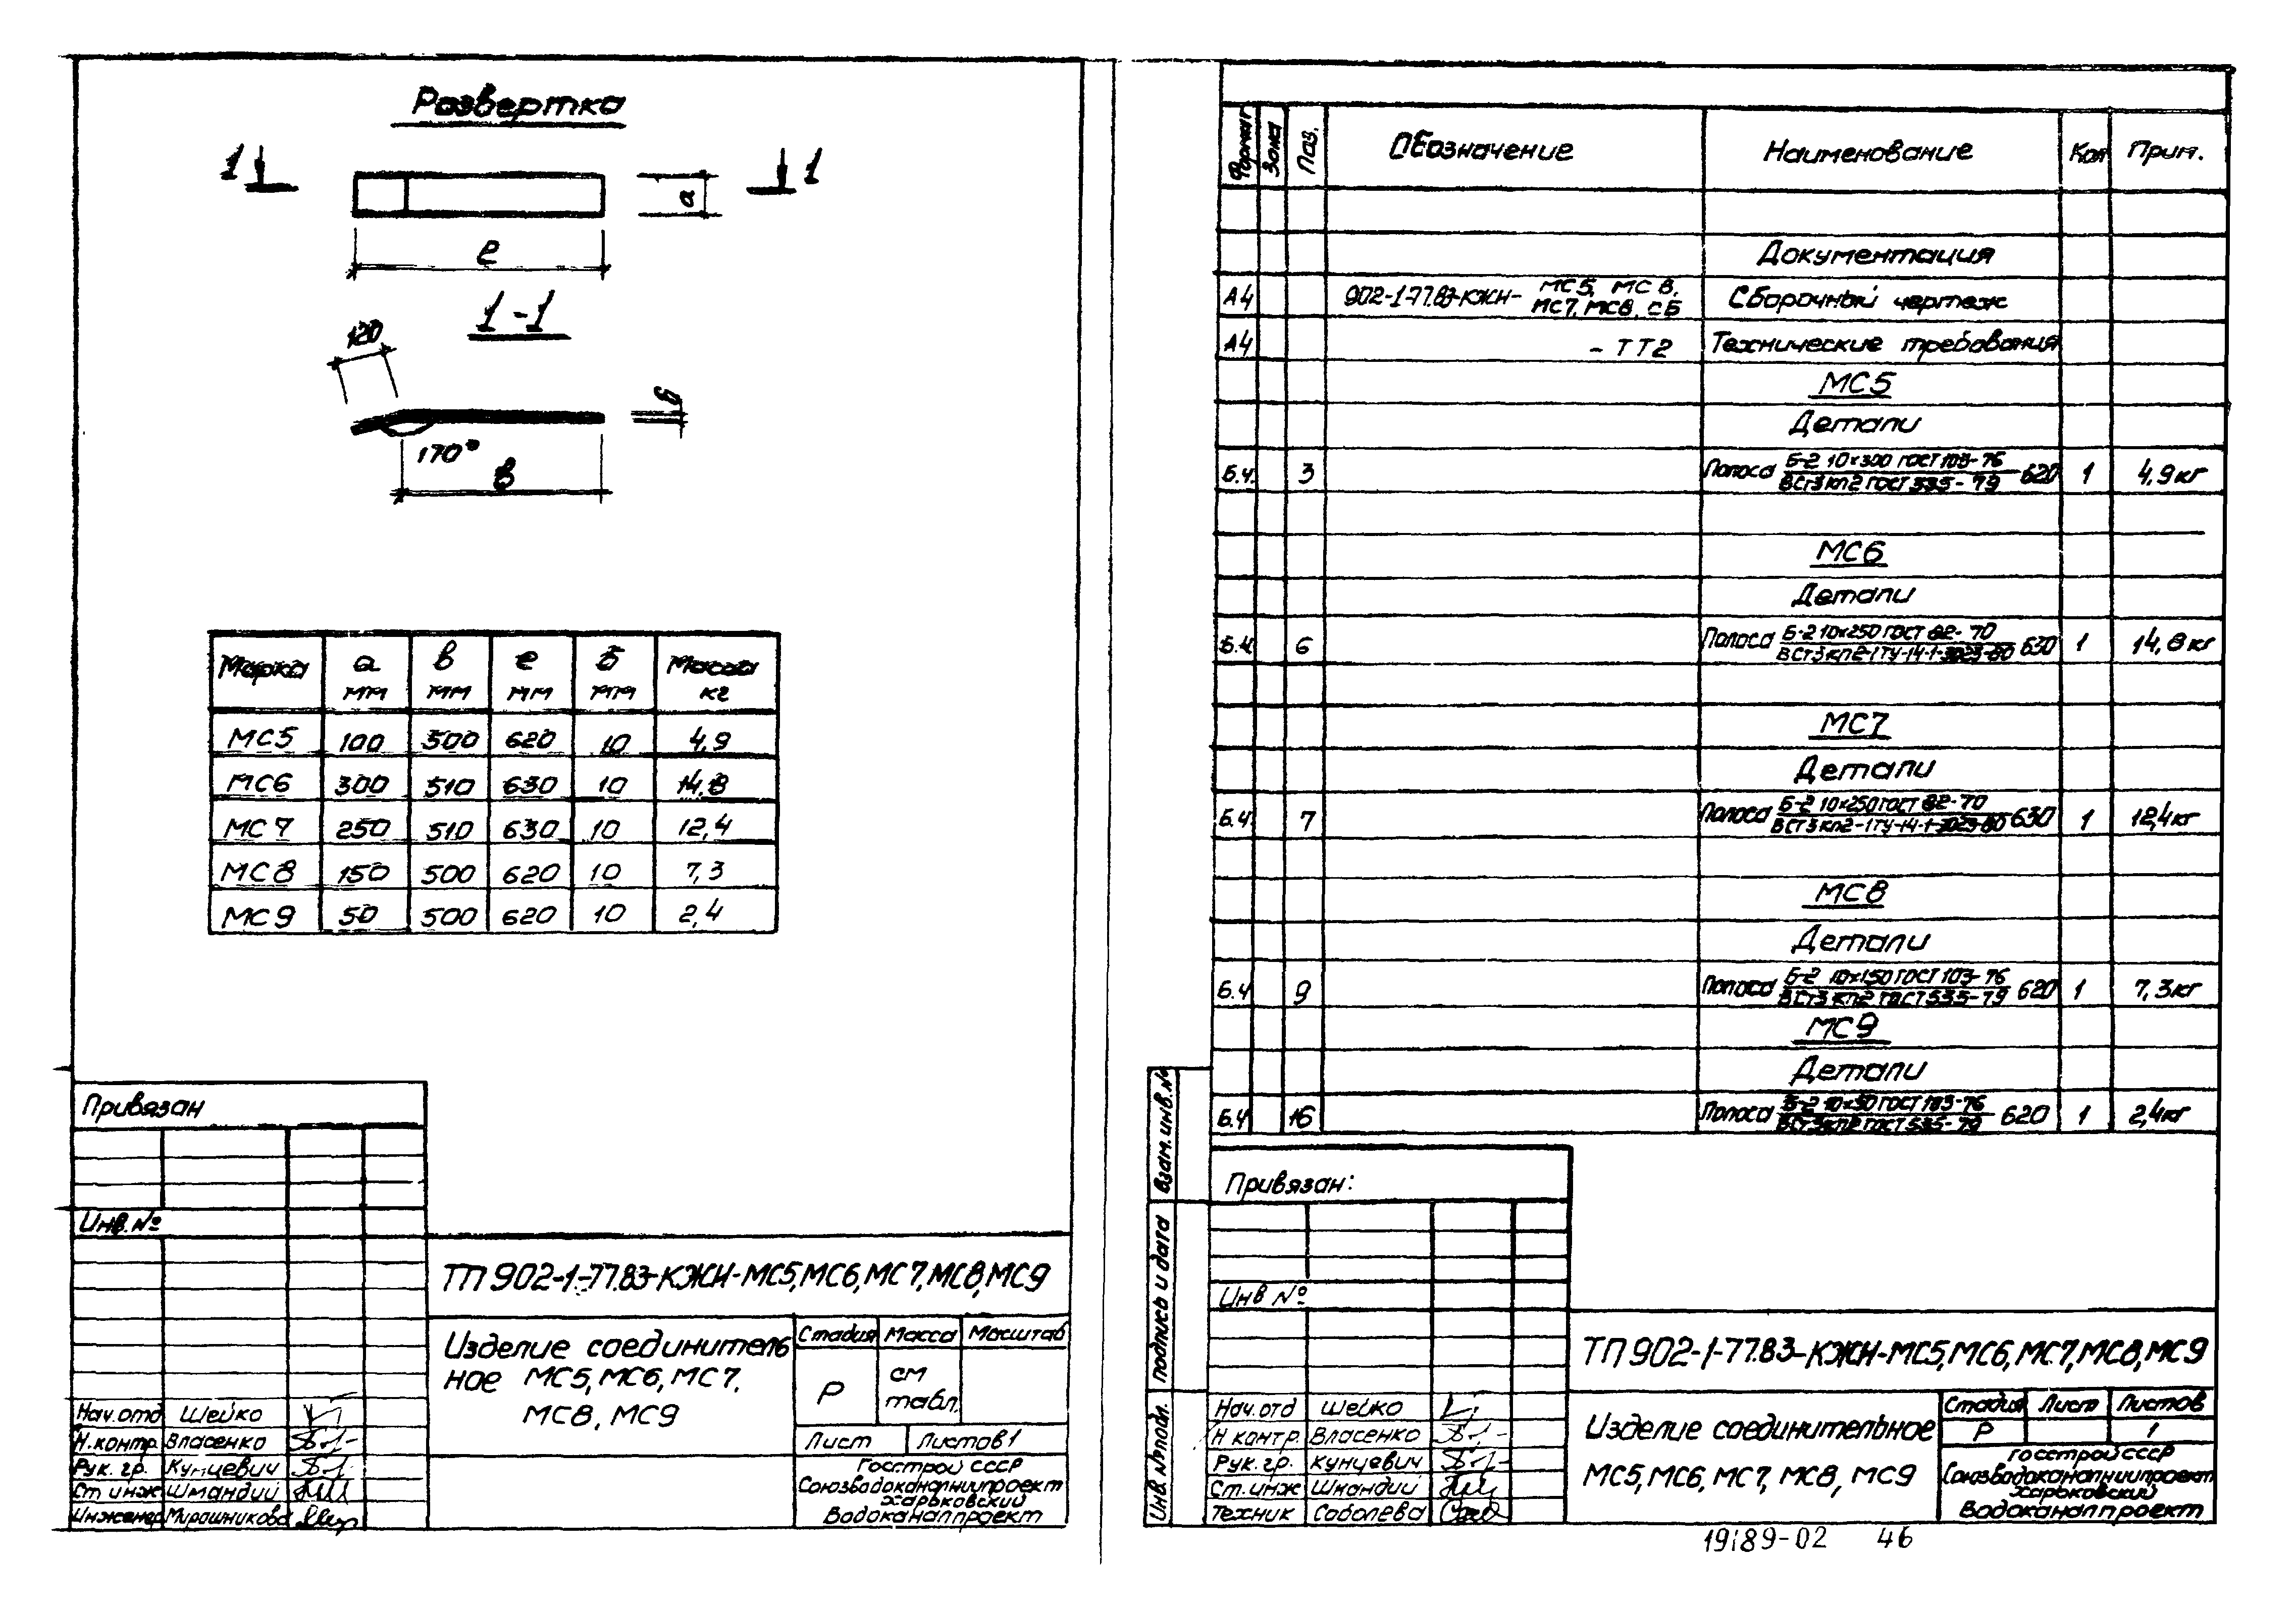 Развертка
1 1
а
е
1-1
120
б
170°
в
Марка а мм в мм е мм б мм Масса кг
МС5 100 500 620 10 4,9
МС6 300 510 630 10 14,8
МС7 250 510 630 10 12,4
МС8 150 500 620 10 7,3
МС9 50 500 620 10 2,4
Привязан
Инв.№
ТП 902-1-77.83-КЖИ-МС5,МС6,МС7,МС8,МС9
Изделие соединитель
ное МС5, МС6, МС7,
МС8, МС9
Стадия Масса Масштаб
Р см табл.
Лист Листов 1
Госстрой СССР
Союзводоканалниипроект
Харьковский
Водоканалпроект
Нач.отд Шейко
Н.контр. Власенко
Рук. гр. Кунцевич
Ст. инж Шмандий
Инженер Мирошникова
Формат Зона Поз. Обозначение Наименование Кол Прим.
Документация
А4 902-1-77.83-КЖИ- МС5, МС6, Сборочный чертеж
МС7, МС8, СБ
А4 - ТТ2 Технические требования
МС5
Детали
Б.ч. 3 Полоса Б-2 10×300 ГОСТ 103-76 620 1 4,9кг
ВСт3кп2 ГОСТ 535-79
МС6
Детали
Б.ч. 6 Полоса Б-2 10×250 ГОСТ 82-70 630 1 14,8 кг
ВСт3кп2-1 ТУ-14-1-3023-80
МС7
Детали
Б.ч. 7 Полоса Б-2 10×250 ГОСТ 82-70 630 1 12,4кг
ВСт3кп2-1 ТУ-14-1-3023-80
МС8
Детали
Б.ч 9 Полоса Б-2 10×150 ГОСТ 103-76 620 1 7,3кг
ВСт3кп2 ГОСТ 535-79
МС9
Детали
Б.ч 16 Полоса Б-2 10×50 ГОСТ 103-76 620 1 2,4кг
ВСт3кп2 ГОСТ 535-79
Взам.инв.№
Подпись и дата
Инв.№подл.
Привязан:
Инв №
ТП 902-1-77.83-КЖИ-МС5,МС6,МС7,МС8,МС9
Изделие соединительное
МС5,МС6, МС7, МС8, МС9
Стадия Лист Листов
Р 1
Госстрой СССР
Союзводоканалниипроект
Харьковский
Водоканалпроект
Нач.отд Шейко
Н контр. Власенко
Рук. гр. Кунцевич
Ст. инж Шмандий
Техник Соболева
19189-02 46